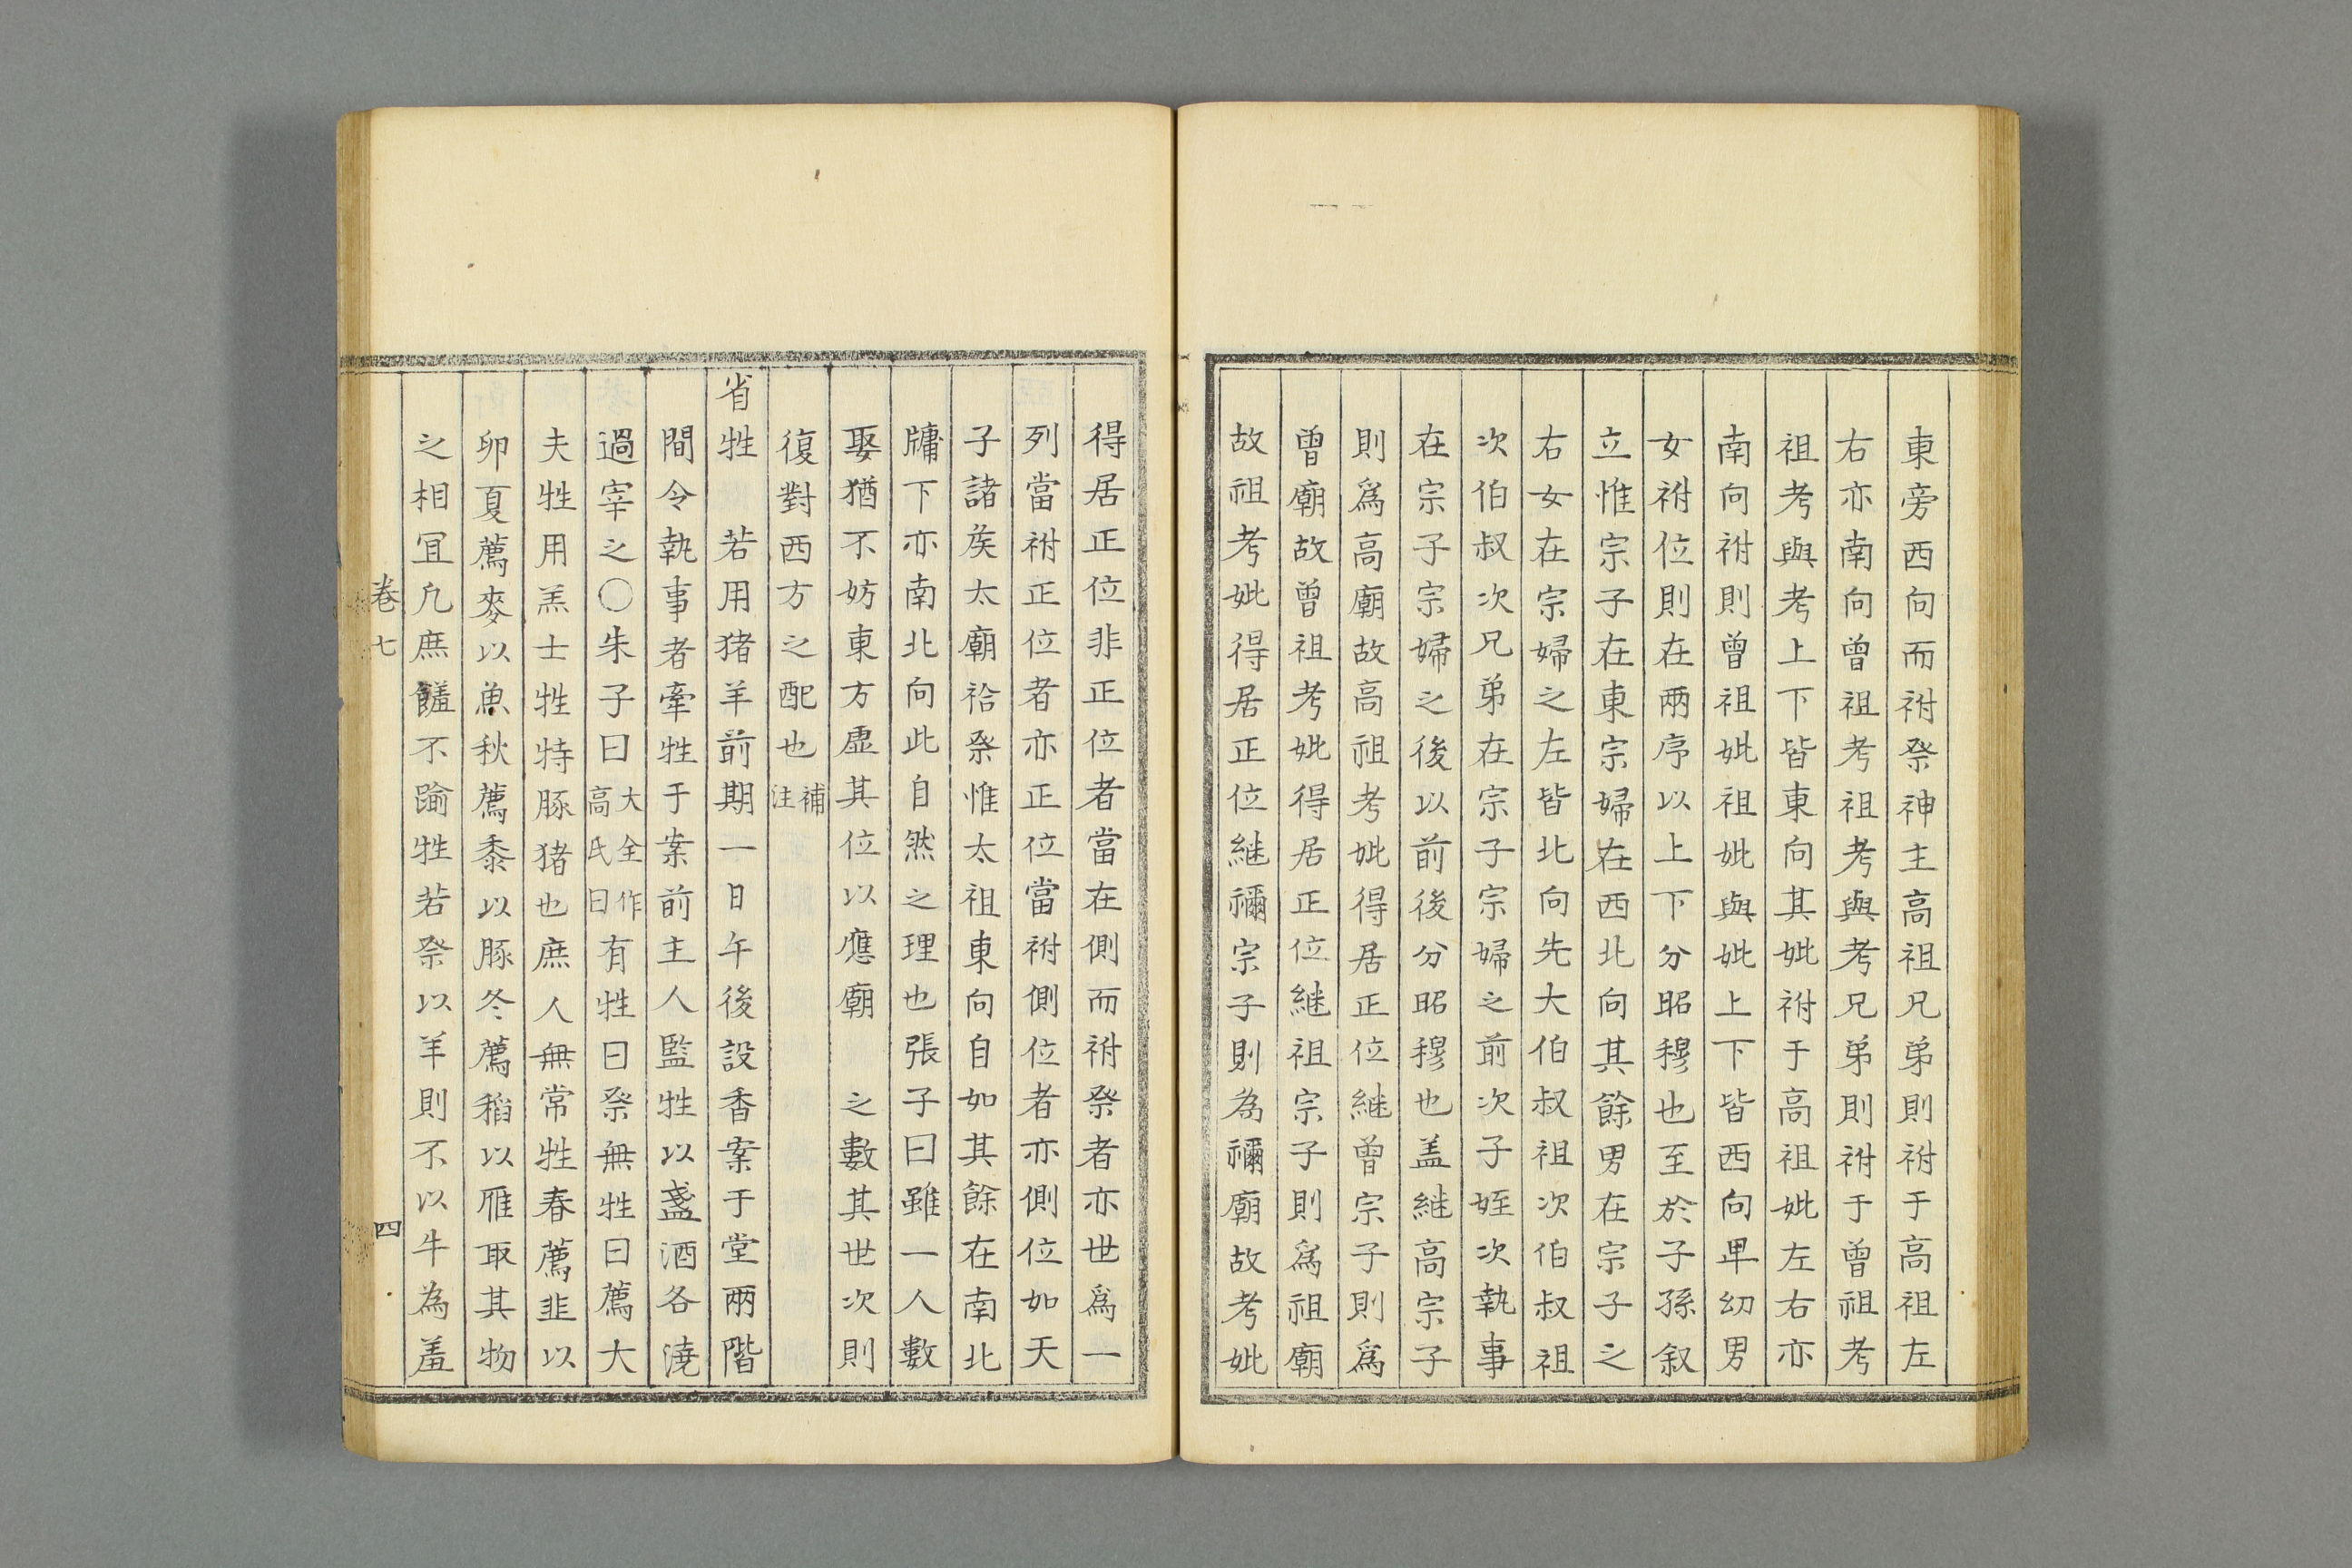 東旁西向而祔祭神主高祖兄弟則祔于高祖左
右亦南向曾祖考祖考與考兄弟則祔于曾祖考
祖考與考上下皆東向其妣祔于高祖妣左右亦
南向祔則曾祖妣祖妣與妣上下皆西向卑幼男
女祔位則在兩序以上下分昭穆也至於子孫叙
立惟宗子在東宗婦在西北向其餘男在宗子之
右女在宗婦之左皆北向先大伯叔祖次伯叔祖
次伯叔次兄弟在宗子宗婦之前次子姪次執事
在宗子宗婦之後以前後分昭穆也盖継高宗子
則爲高廟故高祖考妣得居正位継曾宗子則爲
曾廟故曾祖考妣得居正位継祖宗子則爲祖廟
故祖考妣得居正位継禰宗子則為禰廟故考妣
得居正位非正位者當在側而祔祭者亦世爲一
列當祔正位者亦正位當祔側位者亦側位如天
子諸矦太廟祫祭惟太祖東向自如其餘在南北
牗下亦南北向此自然之理也張子曰雖一人數
娶猶不妨東方虛其位以應廟 之數其世次則
復對西方之配也補注
省牲 若用猪羊前期一日午後設香案于堂兩階
間令執事者牽牲于案前主人監牲以盞酒各澆
過宰之〇朱子曰大全作高氏曰有牲曰祭無牲曰薦大
夫牲用羔士牲特豚猪也庶人無常牲春薦韭以
卵夏薦麥以魚秋薦黍以豚冬薦稻以雁取其物
之相冝凢庶饈不踰牲若祭以羊則不以牛為羞
卷七
四